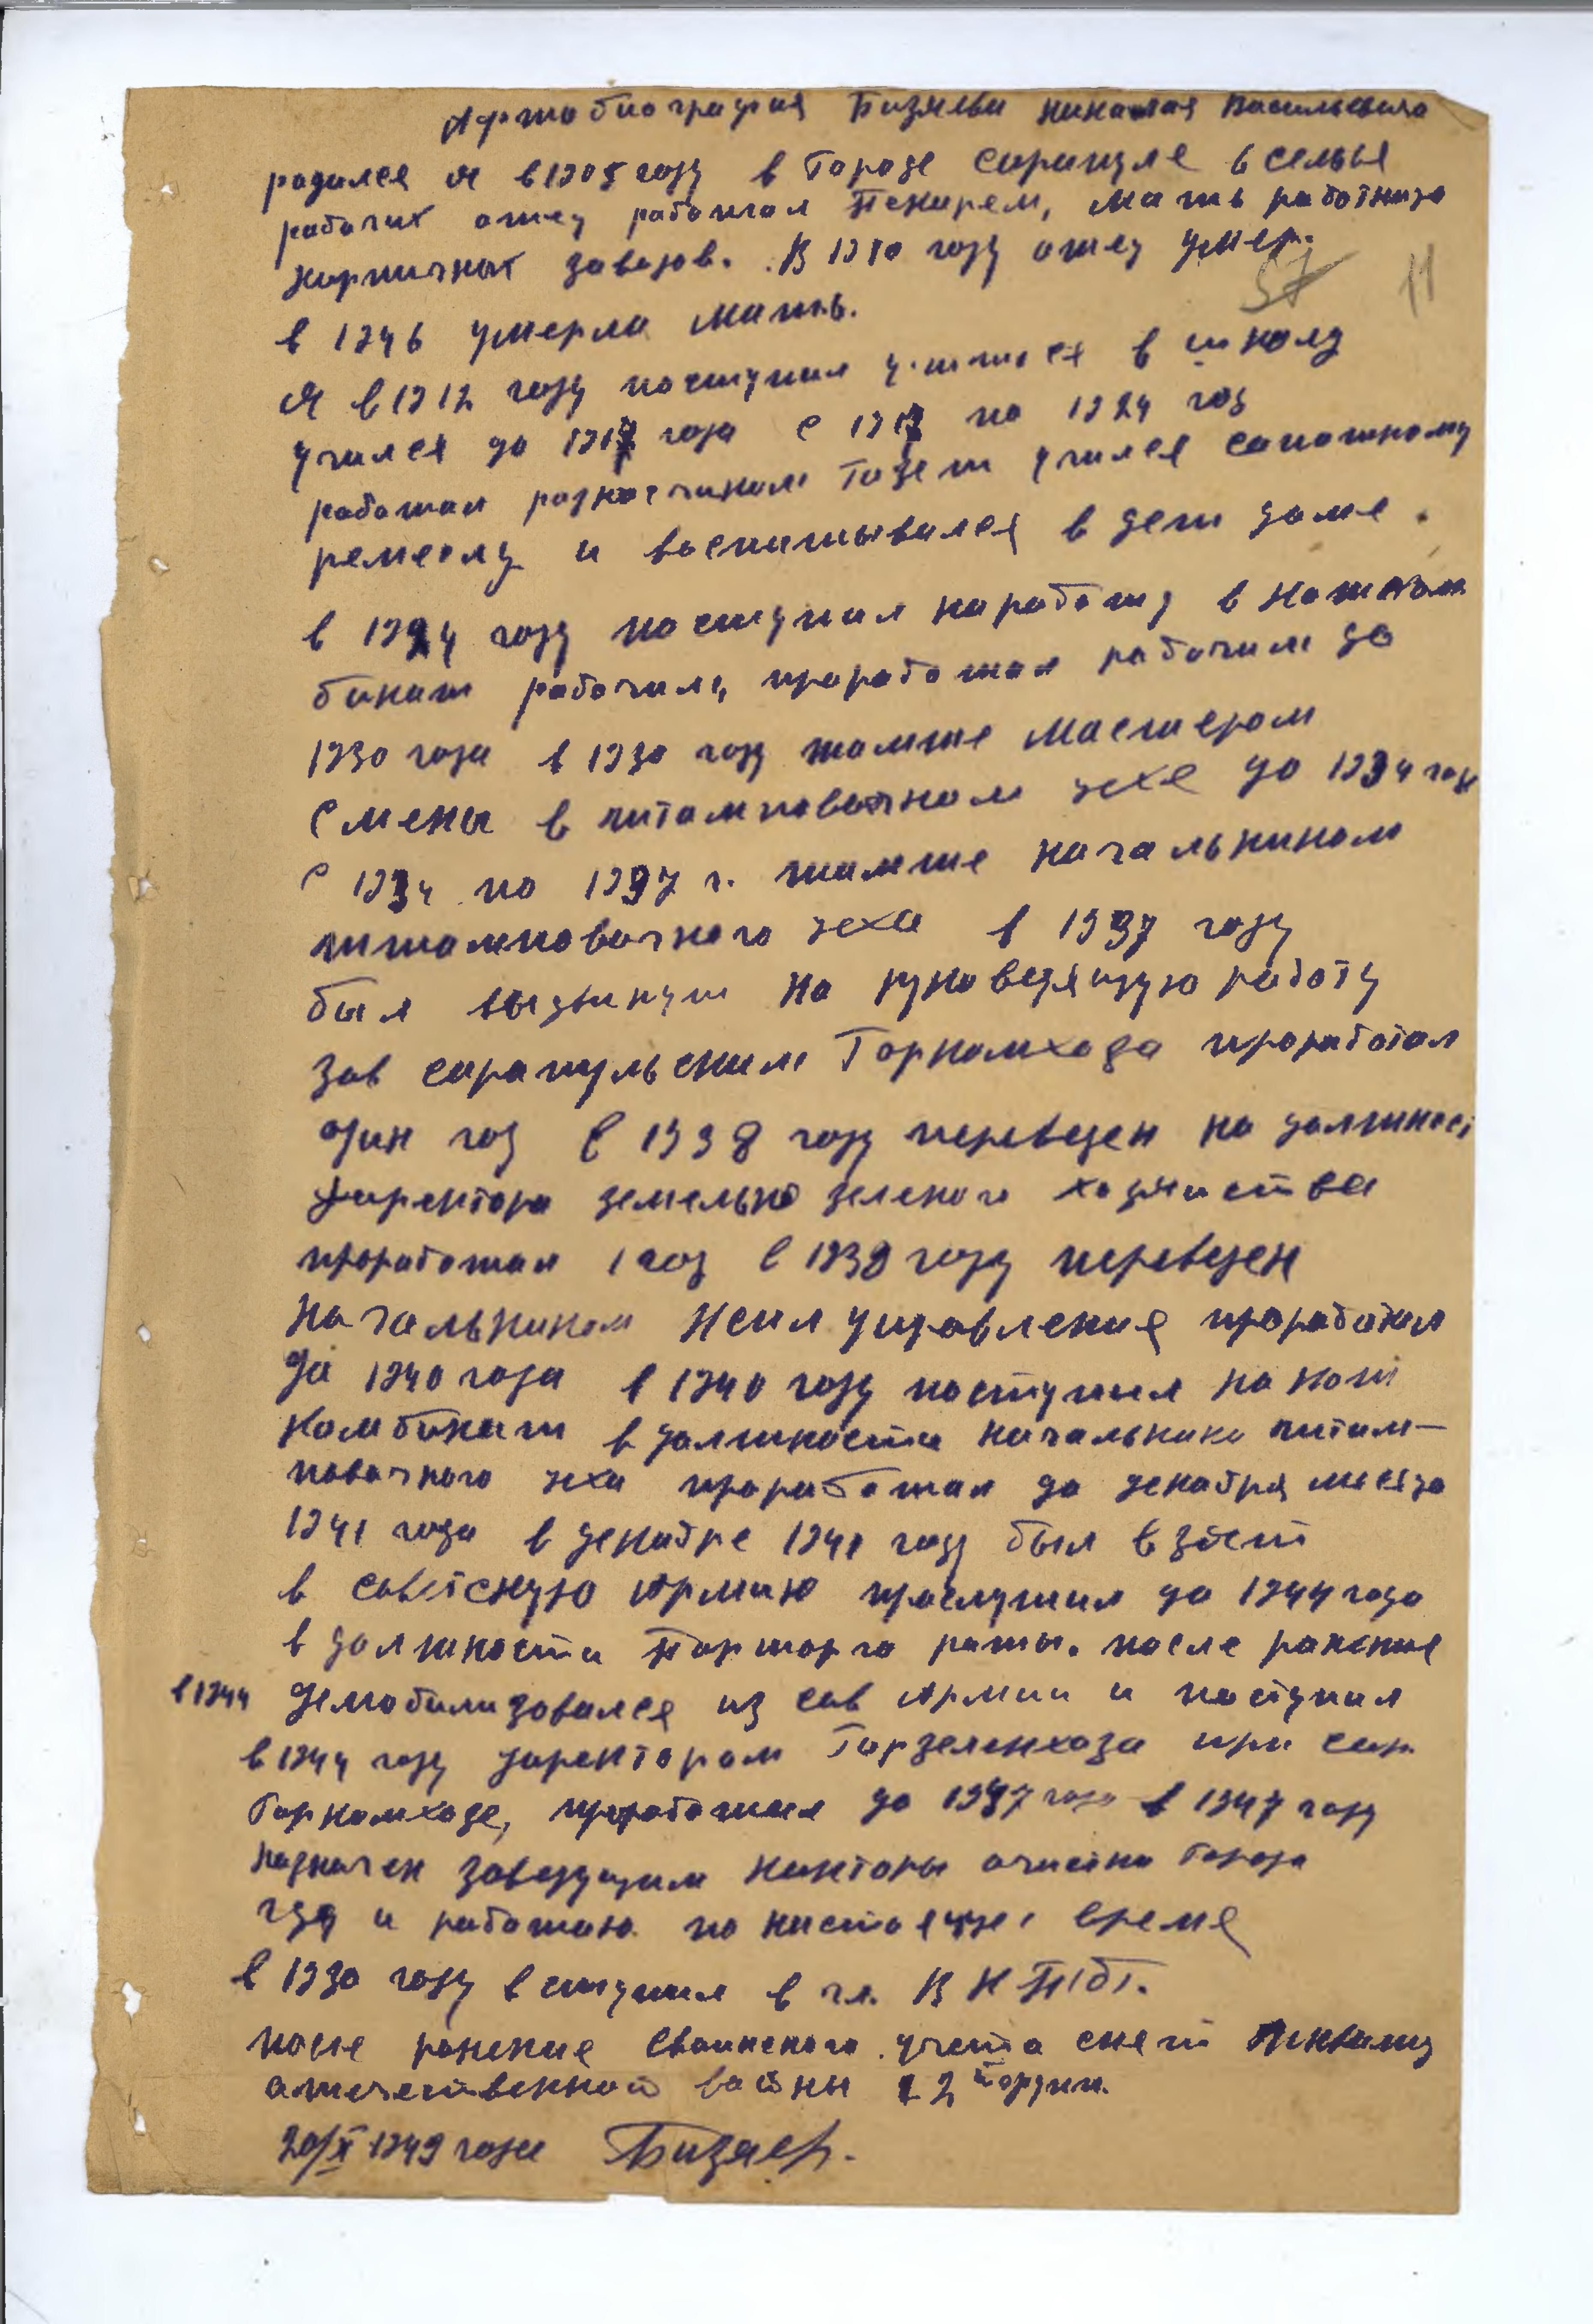 Афтобиография Бизяева Николая Васильевича
родился я в 1905 году в городе Сарапуле в семье
рабочих отец работал пекарем, мать работница
кирпичных заводов. В 1910 году отец умер.
57 11
в 1946 умерла мать.
Я в 1912 году поступил учится в школу
учился до 1917 года с 1917 по 1924 год
работал разносчиком газет учился сапожному
ремеслу и воспитывался в дет доме.
в 1924 году поступил на работу в кожком
бинат рабочим, проработал рабочим до
1930 года в 1930 году тамже мастером
смены в штамповочном цехе до 1934 года
с 1934 по 1937 г. тамже начальником
штамповочного цеха в 1937 году
был выдвинут на руководящую работу
зав сарапульским Горкомхоза проработал
один год в 1938 году переведен на должност
директора земельно зеленого хозяиства
проработал 1 год в 1939 году переведен
начальником жил управления проработал
до 1940 года в 1940 году поступил на кож
комбинат в должности начальника штам-
повочного цеха проработал до декабря месяца
1941 года в декабре 1941 году был взят
в советскую Армию прослужил до 1944 года
в должности парторга роты. после ранение
в 1944 демобилизовался из сов Армии и поступил
в 1944 году директором Горзеленхоза при сар.
Горкомхозе, проработал до 1947 года в 1947 году
назначен заведущим конторы очистки города
где и работаю по настояще время
в 1930 году вступил в чл. ВКП(б).
после ранение своинского учета снят инвалид
отечественной войны 2й группы.
20/X 1949 года Бизяев.